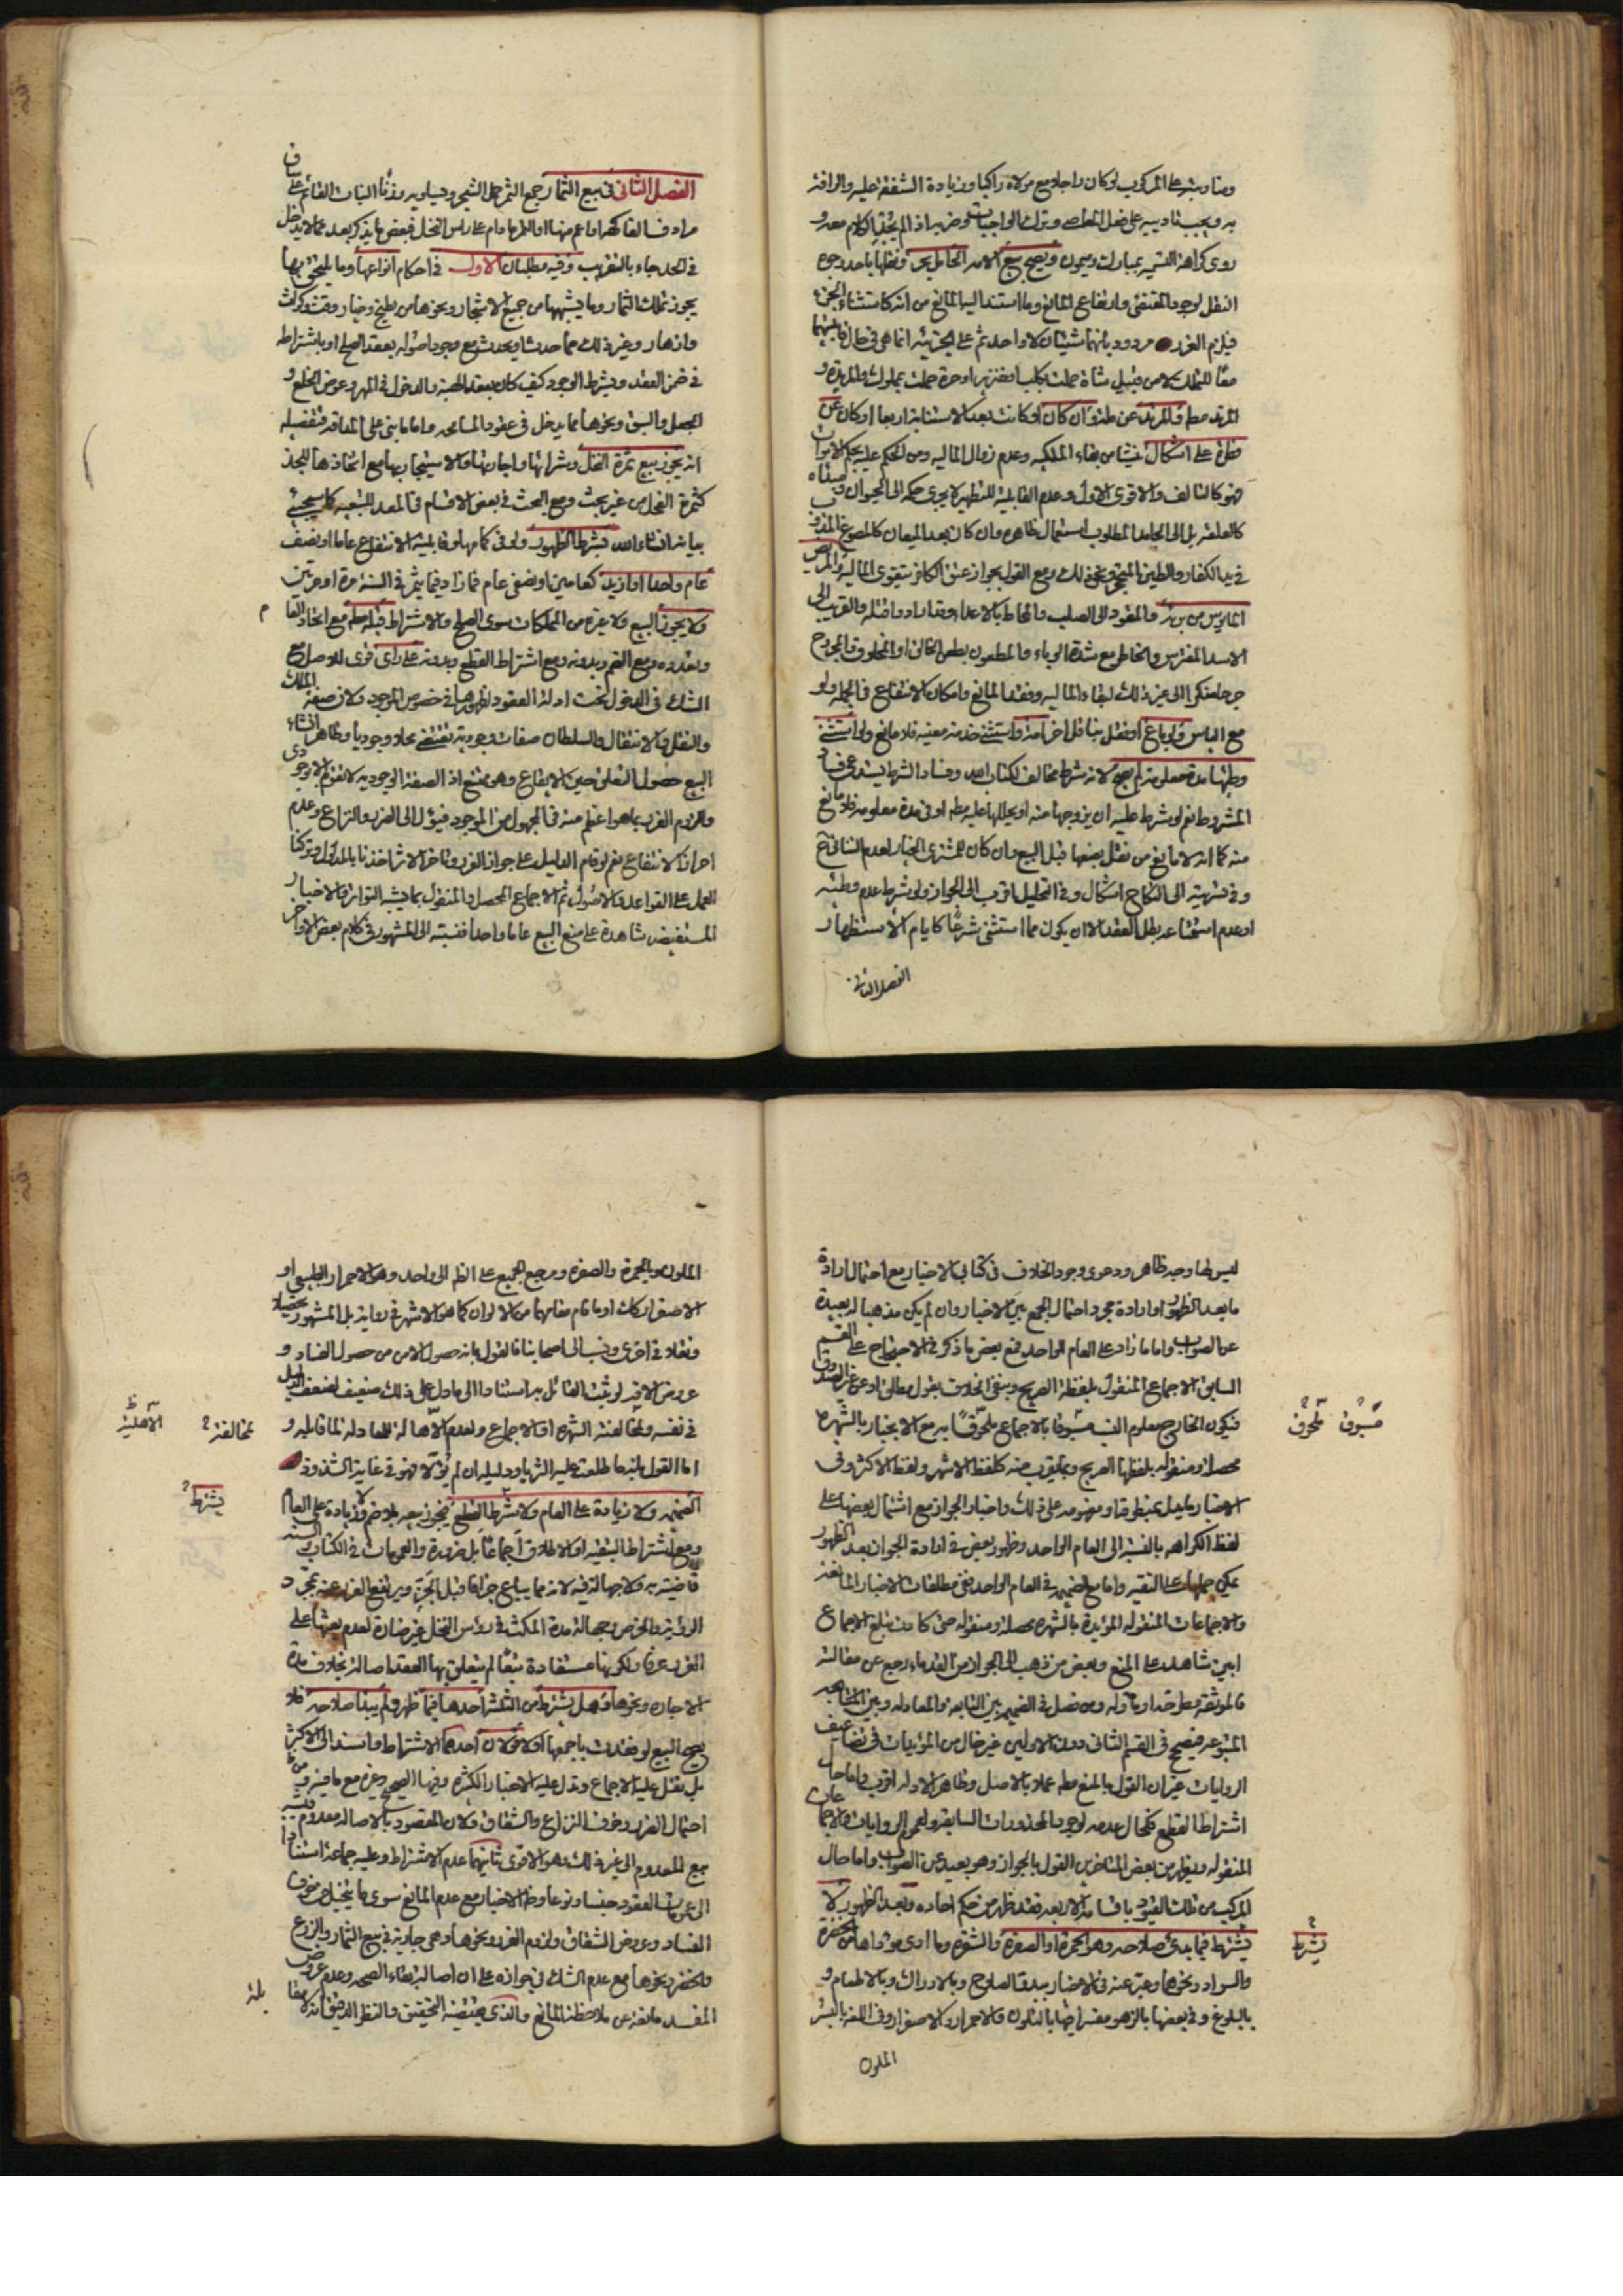 ومناوبته على المركوب لو كان راجلا مع مولاه راكبا وزيادة الشفقة عليه والرافة
به ويجب تاديبه على فعل المعاصي وترك الواجبات وضربه اذا لم يجد الكلام معه و
روى كراهة التسمية بمبارك وميمون ويصح بيع الامة الحامل بحر ونظيرها باحد وجوه
النقل لوجود المقتضي وارتفاع المانع وما استند اليه المانع من انه كاستثناء الجزء
فيلزم الغرر مردود بانهما شيئان لا واحد ثم على الجزئية انما هي في حال قابليتهما
معا للتملك لا من قبيل شاة حملت بكلب او خنزير او حرة حملت بمملوك والمرتدة و
المرتد مطلقا والمرتد عن ملة وان كان او كانت بعد الاستتابة اربعا او كان عن
فطرة على اشكال نشا من بقاء الملكية وعدم زوال المالية ومن الحكم عليه بحكم الاموات
فهو كالتالف والاقوى الاول وعدم القابلية للتطهير لا يجري حكمه الى الحيوان
كالعلقة بل الى الجامد المطلوب استعمال ظاهره وان كان بعد الميعان كالمصوغ المذوب
في يد الكفار والطين المتنجس ونحو ذلك ومع القول بجواز عتق الكافر يتقوى المالية والمريض
المايوس من برئه والمقود الى الصلب والمحاط بالاعداء وقد ارادوا قتله والقريب الى
الاسد المفترس والمخاطر مع شدة الوباء والمطعون بطعن الخالق او المخلوق والمجروح
جرحا منكرا الى غير ذلك لبقاء المالية وفقد المانع وامكان الانتفاع في الجملة ولو
مع الياس ولو باع او نقل بناقل اخر امة واستثنى خدمة معينة فلا مانع ولو استثنى
وطيها مدة معلومة لم يصح لانه شرط مخالف لكتاب الله وفساد الشرط يستدعي فساد
المشروط نعم لو شرط عليه ان يزوجها منه او يحللها عليه مطلقا او في مدة معلومة فلا مانع
منه كما انه لا مانع من نقل بضعها قبل البيع وان كان للمشتري الخيار لعدم التنافي ح
وفي تسريته الى النكاح اشكال وفي التحليل اقرب الى الجواز ولو شرط عدم وطئه
او عدم استمتاعه بطل العقد الا ان يكون مما استثنى شرعا كايام الاستظهار
الفصل الثاني
الفصل الثاني في بيع الثمار جمع الثمر حمل الشجر وما يساويه وزنا النبات القائم على ساق
مرادف الفاكهة او اعم منها او الثمر ما دام على راس النخل فبعض ما يذكر بعد مما لا يدخل
في الحد جاء بالتقريب وفيه مطلبان الاول في احكام انواعها وما يلتحق بها
يجوز تملك الثمار وما يشبهها من جميع الاشجار ونحوها من بطيخ وخيار وقت وكراث
وازهار وغير ذلك مما حدث او يحدث مع وجود اصوله بعقد الصلح او باشتراطه
في ضمن العقد وبشرط الوجود كيف كان بعقد الهبة والدخول في المهر وعوض الخلع و
الجعل والسبق ونحوها مما يدخل في عقود المسامحة واما ما بنى على المداقة فتفصيله
انه يجوز بيع ثمرة النخل وشرائها واجارتها والاستيجار بها مع اتخاذها للجذ
كثمرة الفحل من غير بحث ومع البحث في بعض الاقسام في المعد للتبعية كما سيجيئ
بيانه ان شاء الله بشرط الظهور ولو في كمامها وقابلية الانتفاع عاما او نصف
عام واحدا او ازيد كعامين او نصفي عام فما زاد فيما يثمر في السنة مرة او مرتين
ولا يجوز البيع ولا غيره من المملكات سوى الصلح والاشتراط قبله مطلقا مع اتحاد العام
وتعدده ومع الضم وبدونه ومع اشتراط القطع وبدونه على راي قوي للاصل مع
الشك في الدخول تحت ادلة العقود لظهورها في خصوص الموجود ولان صفة الملك
والنقل والانتقال والسلطان صفات وجودية تقتضي محلا وجوديا وظاهر انشاء
البيع حصول التعلق حين الايقاع وهو ممتنع اذ الصفة الوجودية لا تقوم الا بوجودي
وللزوم الغرر بما هو اعظم منه في المجهول من الموجود فيؤل الى الضرر والنزاع وعدم
احراز الانتفاع نعم لو قام الدليل على جواز الغرر وتاخر الاثر اخذنا بالمدلول وتركنا
العمل على القواعد والاصول ثم الاجماع المحصل والمنقول بما يشبه التواتر والاخبار
المستفيضة شاهدة على منع البيع عاما واحدا فنسبته الى المشهور في كلام بعض الاواخر
ليس لها وجه ظاهر ودعوى وجود الخلاف في كتابي الاخبار مع احتمال ارادة
ما بعد الظهور او ارادة مجرد احتمال الجمع بين الاخبار وان لم يكن مذهبا له بعيدة
عن الصواب واما ما زاد على العام الواحد فمع بعض ما ذكر في الاحتجاج على القسم
السابق الاجماع المنقول بلفظه الصريح وبنفي الخلاف بقول مطلق او عن غير الصدوق
فيكون الخارج معلوم النسب مسبوقا بالاجماع ملحوقا به مع الاعتبار بالشهرة
محصلة ومنقولة بلفظها الصريح وبما يقرب منه كلفظ الاشهر ولفظ الاكثر وفي
الاخبار ما يدل بمنطوقه او مفهومه على ذلك واخبار الجواز مع اشتمال بعضها على
لفظ الكراهة بالنسبة الى العام الواحد وظهور بعض في ارادة الجواز بعد الظهور
يمكن حملها على التقية واما مع الضميمة في العام الواحد ففي مطلقات الاخبار المانعة
والاجماعات المنقولة المؤيدة بالشهرة محصلة ومنقولة حتى كادت تبلغ الاجماع
ابين شاهد على المنع وبعض من ذهب الى الجواز من القدماء رجع عن مقالته
فالموثقة مطرحة او ماولة ومن فصل في الضميمة بين التابعة والمعادلة وبين المتبوعة
المتبوعة فيصح في القسم الثاني دون الاولين غير خال من المؤيدات في تضاعيف
الروايات غير ان القول بالمنع مطلقا عملا بالاصل وظاهر الادلة اقرب واما حال
اشتراط القطع كحال عدمه لوجود المحذورات السابقة ولعموم الروايات والاجماعات
المنقولة ويظهر من بعض المتاخرين القول بالجواز وهو بعيد عن الصواب واما حال
المركب من تلك القيود باقسامه الاربعة فقد ظهر من حكم احاده وبعد الظهور لا
يشترط فيما بدئ صلاحه وهو الحمرة او الصفرة والشقرة وما ادى مؤداها من الخضرة
والسواد ونحوهما وعبر عنه في الاخبار ببدو الصلاح وبالادراك وبالاطعام و
بالبلوغ وفي بعضها بالزهو مفسرا ايضا بالتلون والاحمرار والاصفرار وفي اللغة بالبسر
الملون
مسبوق ملحوق
يشترط
الملون بالحمرة والصفرة ومرجع الجميع على الظاهر الى واحد وهو الاحمرار الطبيعي او
الاصفرار كذلك او ما قام مقامهما من الالوان كما هو الاشهر في رواية بل المشهور تحصيلا
ونقلا في اخرى ونسب الى اصحابنا فالقول بانه حصول الامن من حصول الفساد و
عروض الافة لو ثبت القائل به استنادا الى ما دل على ذلك ضعيف لضعف الدليل
في نفسه ولمخالفته الشهرة او الاجماع ولعدم الاهلية له للمعادلة لما قابله و
اما القول بانه ما طلعت عليه الثريا ودليله ان لم يؤولا فهو في غاية الشذوذ
الضميمة ولا زيادة على العام ولا شرط القطع فيجوز بيعه بلا ضم ولا زيادة على العام
ومع اشتراط التبقية او الاطلاق اجماعا بل ضرورة والعمومات في الكتاب والسنة
قاضية به ولا جهالة فيه لانه مما يباع جزافا قبل الجز ويرتفع الغرر عنه بمجرد
الرؤية والخرص وجهالة مدة المكث في رؤس النخل غير ضارة لعدم بعثها على
الغرر عرفا ولكونها مستفادة تبعا لم يتعلق بها العقد اصالة بخلاف مدة
الاجارة ونحوها وهل يشترط من الثلاثة احدها فيما ظهر ولم يبد صلاحه فلا
يصح البيع لو فقدت باجمعها اولا قولان احدهما الاشتراط واسند الى الاكثر
بل نقل عليه الاجماع وتدل عليه الاخبار الكثيرة وفيها الصحيح وغيره مع ما فيه من
احتمال الغرر وخوف النزاع والشقاق ولان المقصود بالاصالة معدوم فيشبه
بيع المعدوم الى غير ذلك وهو الاقوى ثانيهما عدم الاشتراط وعليه جماعة استنادا
الى عمومات العقود جنسا ونوعا وظاهر الاخبار مع عدم المانع سوى ما يتخيل من خوف
الفساد وعروض الشقاق ولزوم الغرر ونحوها وهي جارية في بيع الثمار والزرع
والخضر ونحوها مع عدم الشك في جوازه على ان اصالة بقاء الصحة وعدم عروض
المفسد مانعة عن ملاحظة المانع والذي يقتضيه التحقيق والنظر الدقيق انه لا مقابلة
لمخالفته
الاهلية ظ
يشترط
بلة